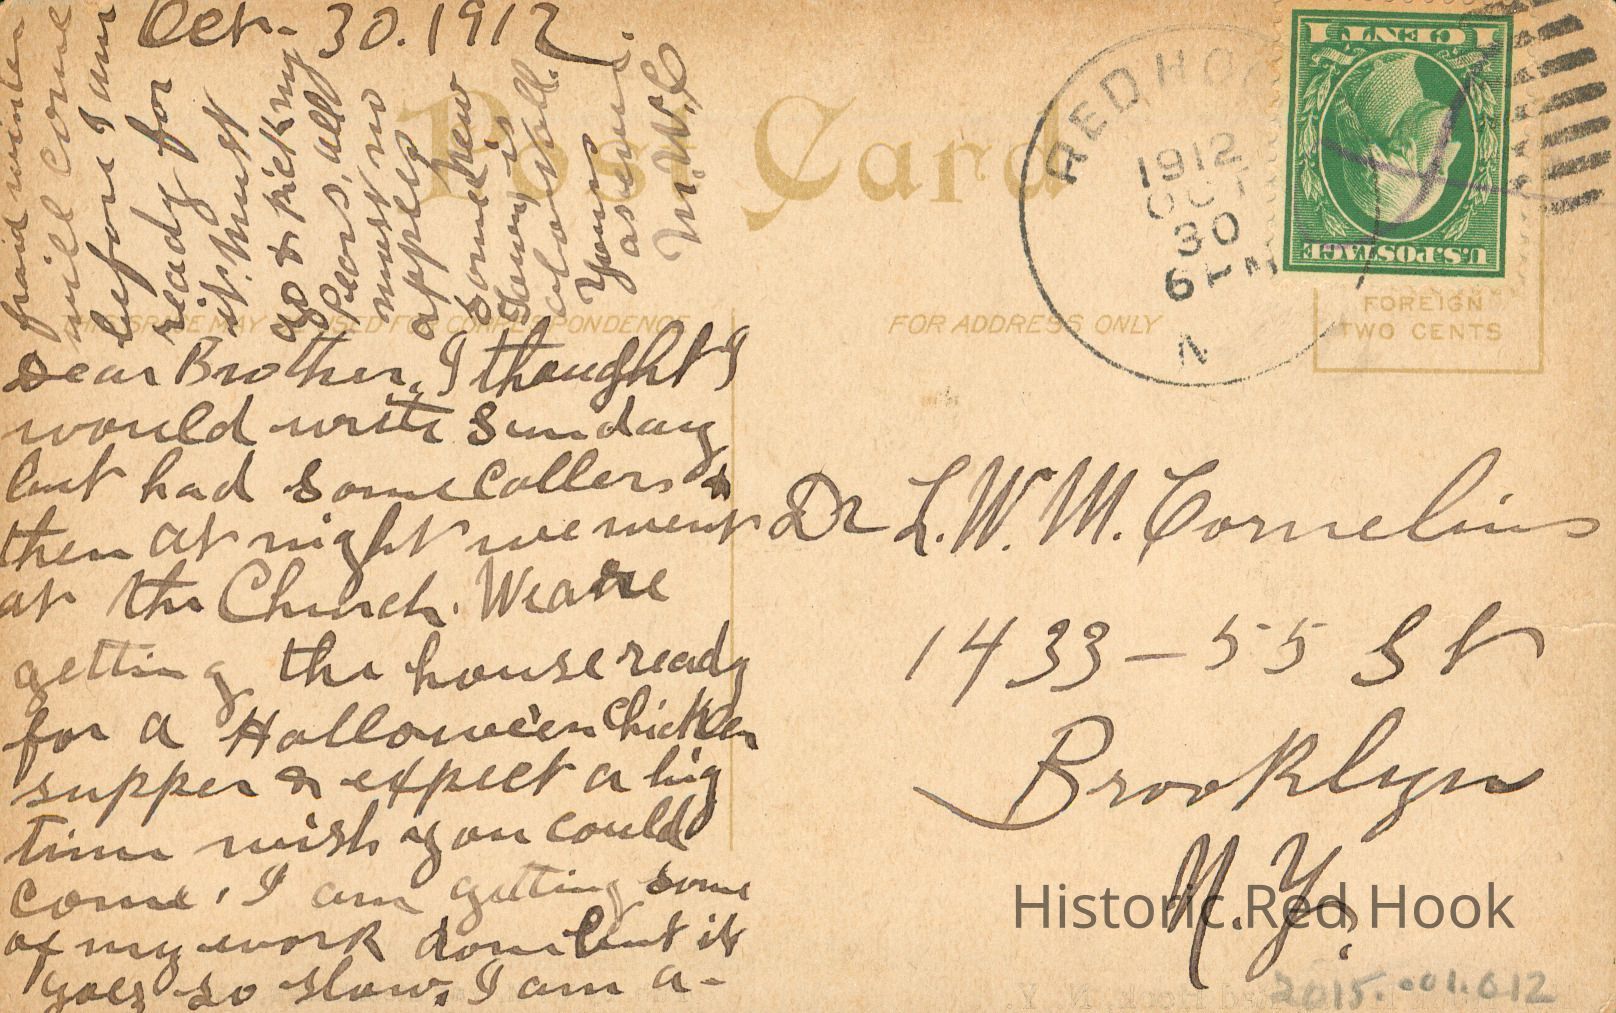 Oct. 30. 1912.
Post Card
THIS SPACE MAY BE USED FOR CORRESPONDENCE
FOR ADDRESS ONLY
Dear Brother, I thought I
would write Sunday
but had some callers &
then at night we went
at the Church. We are
getting the house ready
for a Hallowe'en Chicken
supper & expect a big
time wish you could
come. I am getting some
of my work done but it
goes so slow. I am a-
fraid winter
will come
before I am
ready for
it. Must
go & pick my
pears, all
must no
apples
some how
Yours
as ever.
M.W.C
RED HOOK
1912
OCT
30
6 PM
N
1 CENT 1
U.S. POSTAGE
FOREIGN
TWO CENTS
Dr L. W. M. Cornelius
1433 - 55 St
Brooklyn
N. Y.
Historic Red Hook
2015.001.612
Red Hook, N. Y.